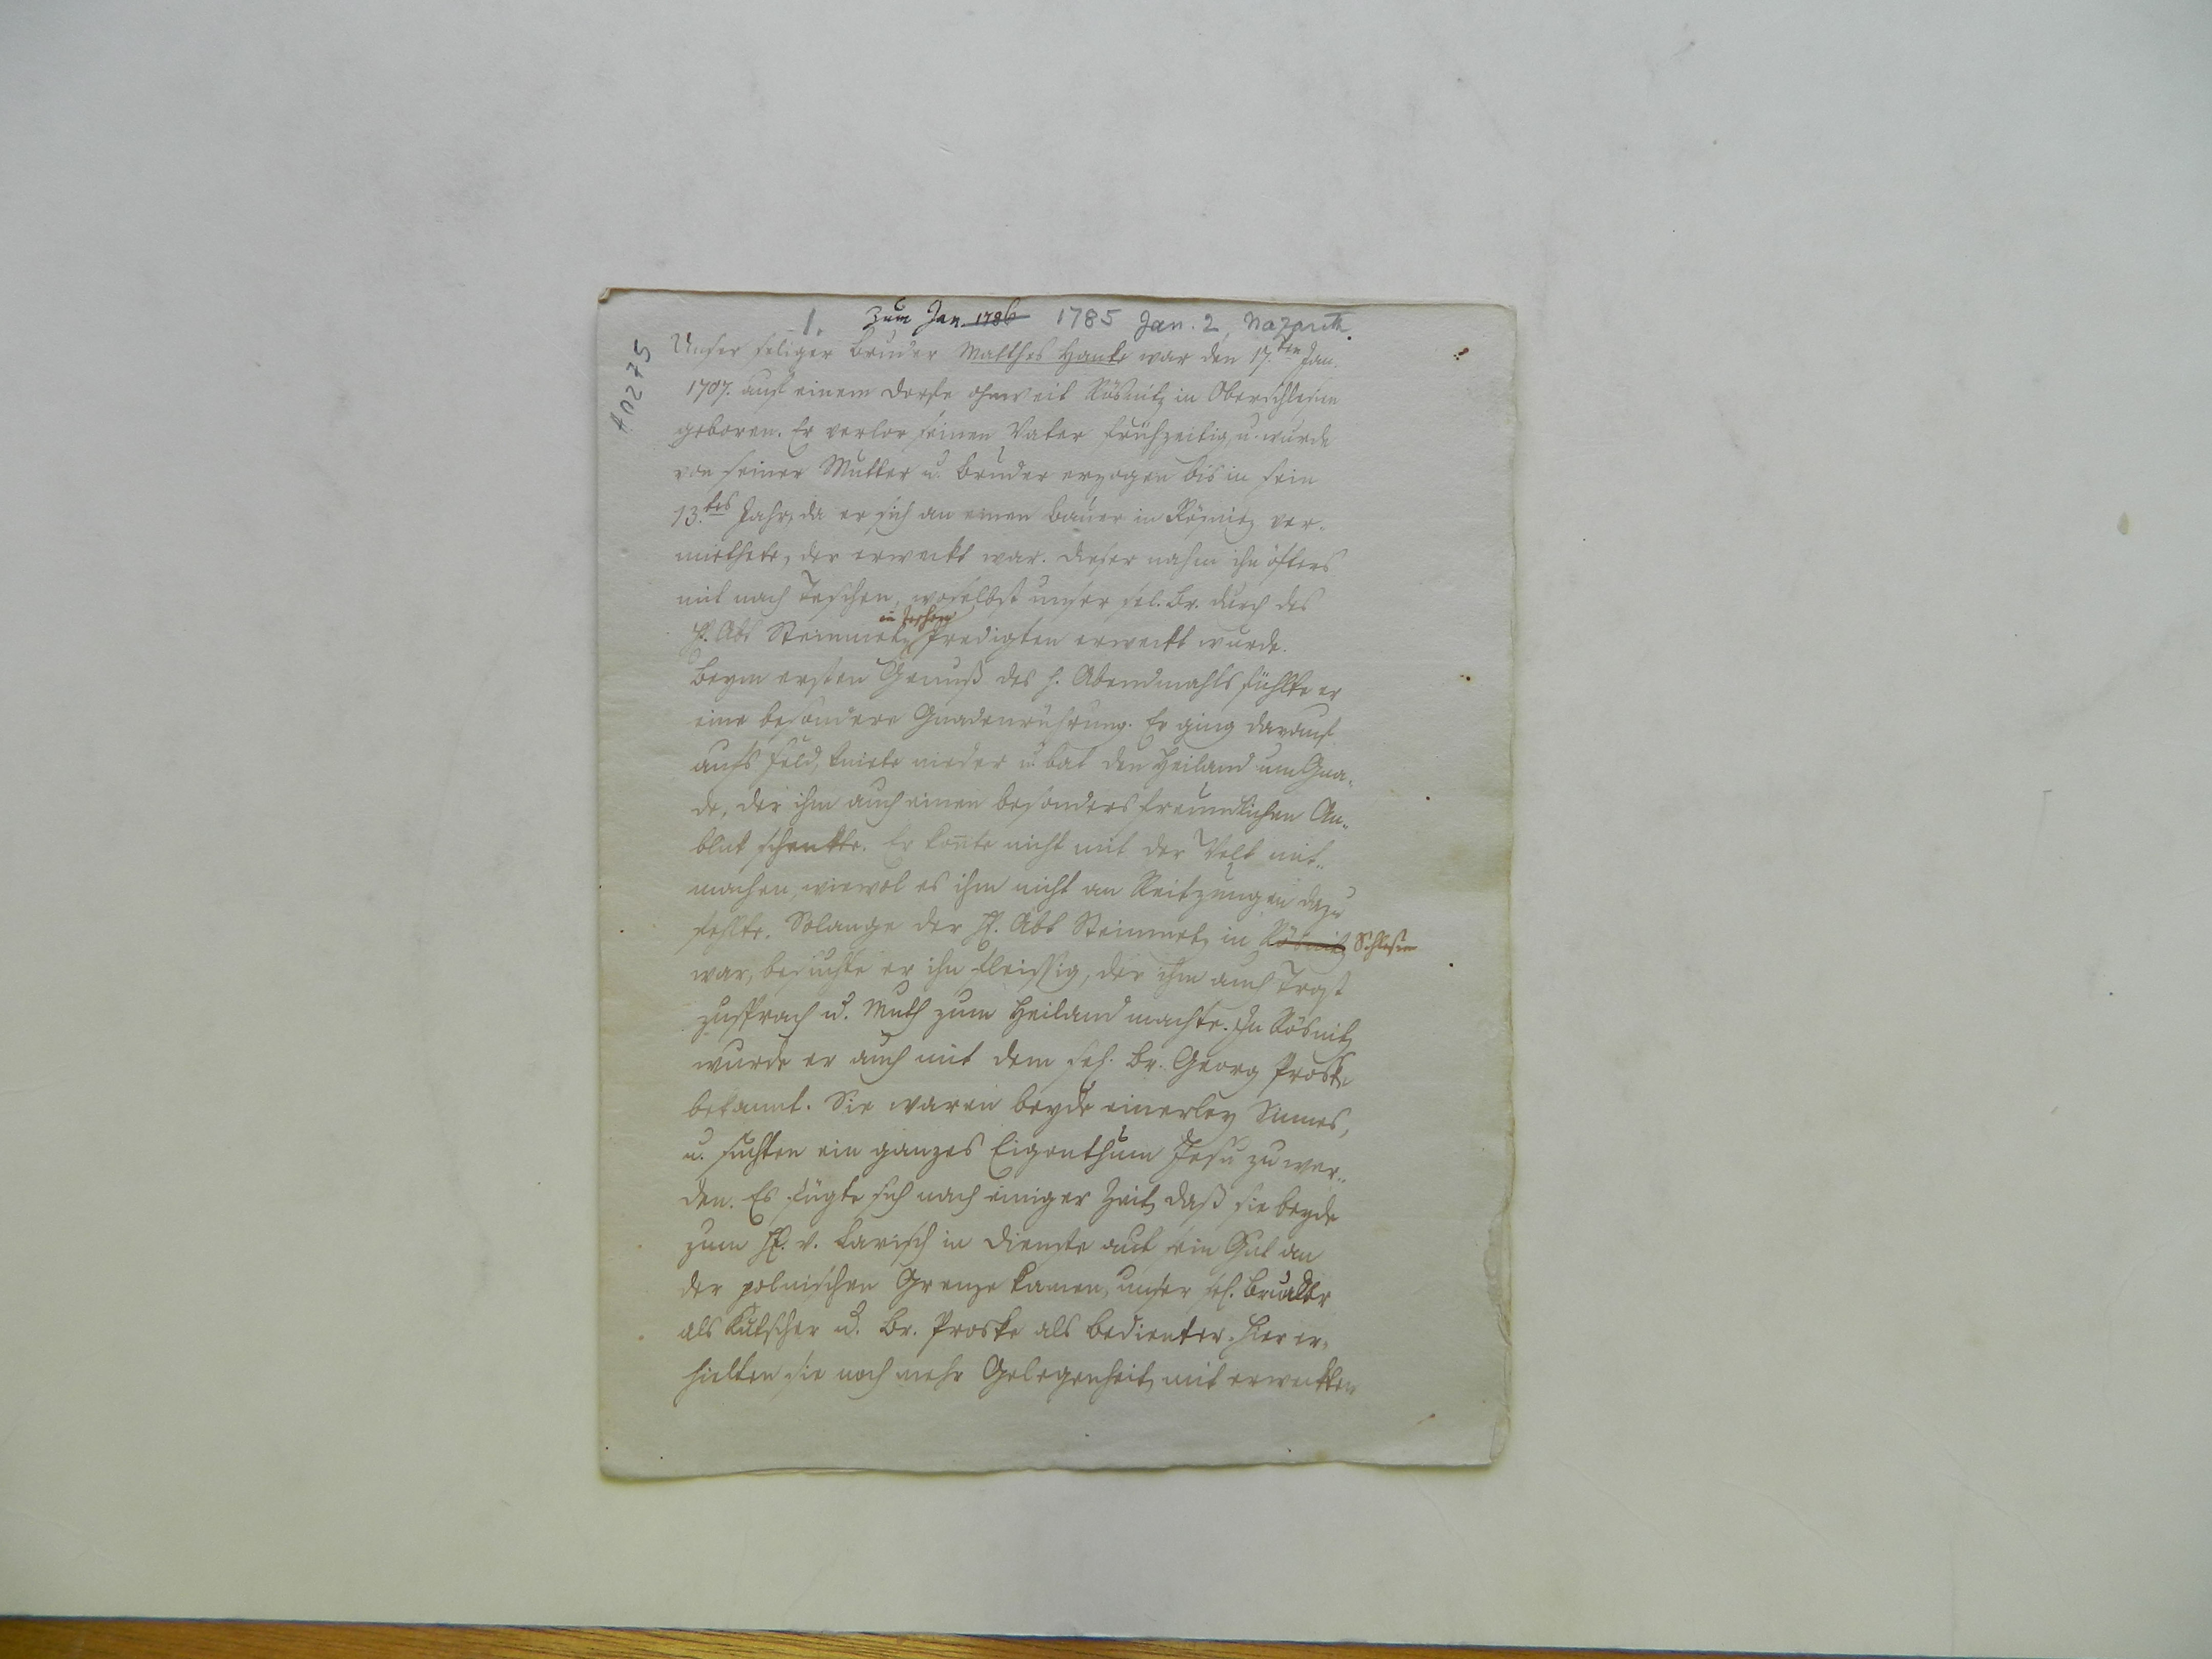 1. Zum Jan. 1786 1785 Jan. 2, Nazareth.
A02275
Unser seliger Bruder Matthes Hanke war den 17.ten Jan.
1707. auf einem Dorfe ohnweit Rösnitz in Oberschlesien
geboren. Er verlor seinen Vater frühzeitig, u. wurde
von seiner Mutter u. Bruder erzogen bis in sein
13.tes Jahr, da er sich an einen Bauer in Rösnitz ver-
miethete, der erweckt war. Dieser nahm ihn öfters
mit nach Teschen, woselbst unser sel. Br. durch des
in Teschen
H. Abt Steinmetz Predigten erweckt wurde.
Beym ersten Genuß des h. Abendmahls fühlte er
eine besondere Gnadenrührung. Er ging darauf
aufs Feld, kniete nieder u. bat den Heiland um Gna-
de, der ihm auch einen besonders freundlichen An-
blik schenkte. Er konte nicht mit der Welt mit-
machen, wiewol es ihm nicht an Reitzungen dazu
fehlte. Solange der H. Abt Steinmetz in Rösnitz Schlesien
war, besuchte er ihn fleissig, der ihm auch Trost
zusprach u. Muth zum Heiland machte. In Rösnitz
wurde er auch mit dem sel. Br. Georg Proske
bekannt. Sie waren beyde einerley Sinnes,
u. suchten ein ganzes Eigenthum Jesu zu wer-
den. Es fügte sich nach einiger Zeit, daß sie beyde
zum H. v. Larisch in Dienste auf sein Gut an
der polnischen Grenze kamen, unser sel. Bruder
als Kutscher u. Br. Proske als Bedienter. Hier er-
hielten sie noch mehr Gelegenheit, mit erweckten